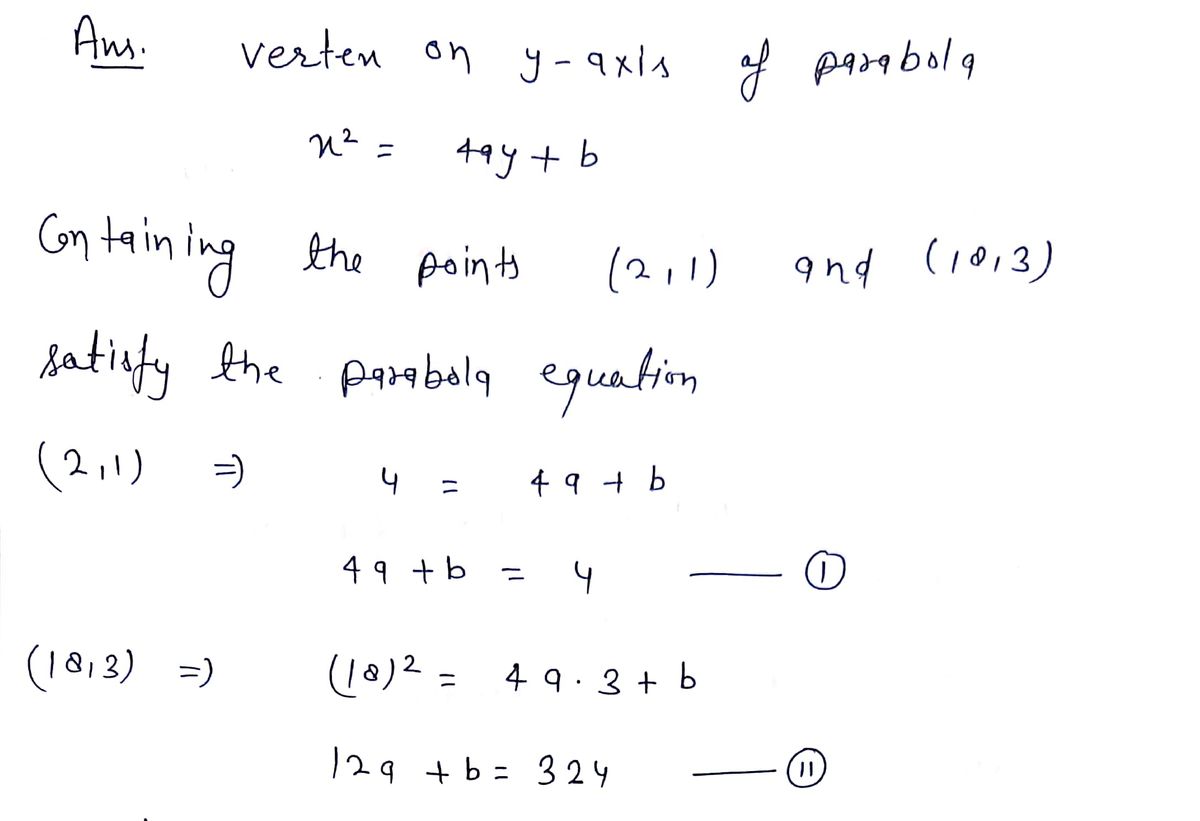 Ans. vertex on y-axis of parabola
x² = 4ay + b
Containing the points (2,1) and (18,3)
satisfy the parabola equation
(2,1) ⇒ 4 = 4a + b
4a + b = 4 —— Ⓘ
(18,3) ⇒ (18)² = 4a·3 + b
12a + b = 324 —— ⓘⓘ